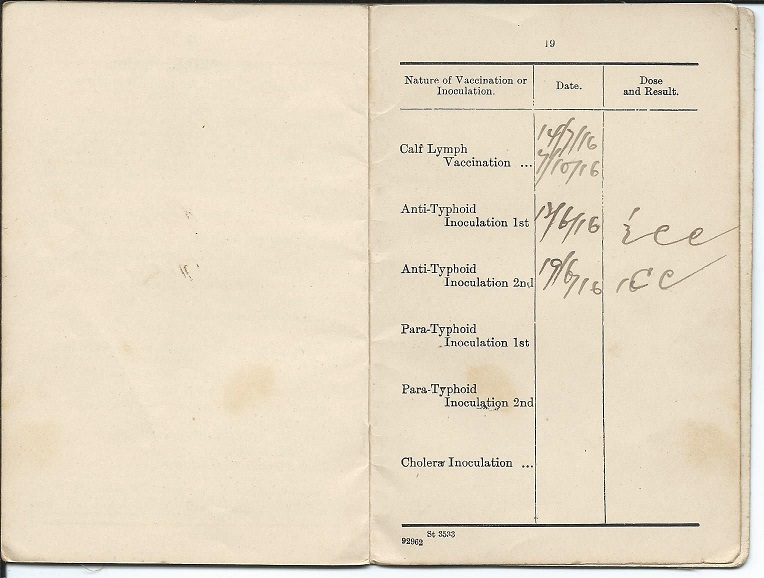 19
Nature of Vaccination or Inoculation. Date. Dose and Result.
Calf Lymph 14/7/16
Vaccination ... 7/10/16
Anti-Typhoid
Inoculation 1st 13/6/16 ½ cc
Anti-Typhoid
Inoculation 2nd 19/6/16 1 CC
Para-Typhoid
Inoculation 1st
Para-Typhoid
Inoculation 2nd
Cholera Inoculation ...
St 3533
92962